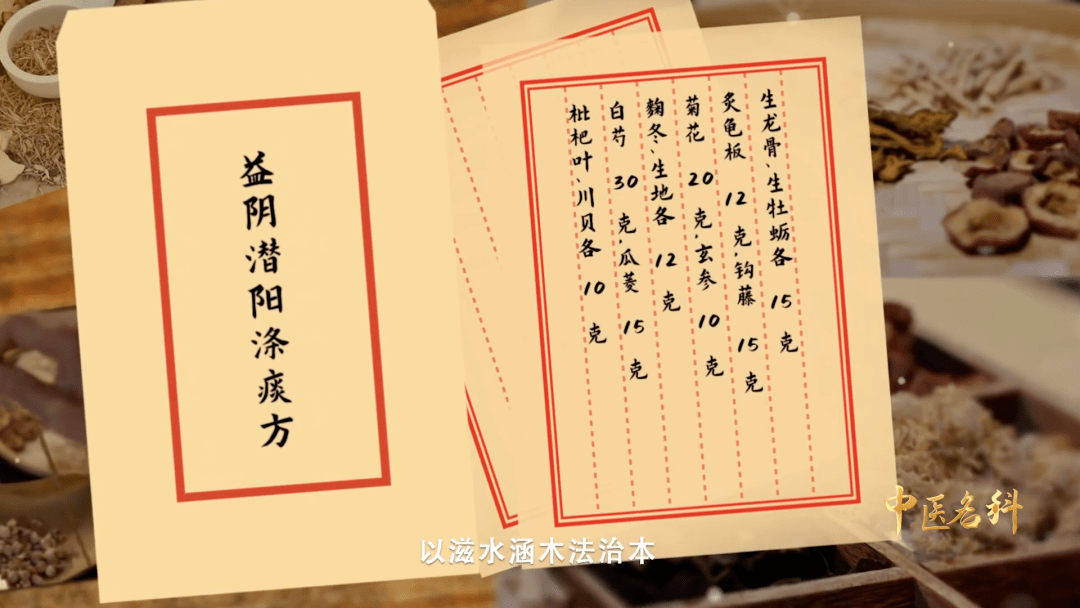 益阴潜阳涤痰方
生龙骨、生牡蛎各 15 克
炙龟板 12 克,钩藤 15 克
菊花 20 克,玄参 10 克
麴冬、生地各 12 克
白芍 30 克,瓜菱 15 克
枇杷叶、川贝各 10 克
中医名科
以滋水涵木法治本